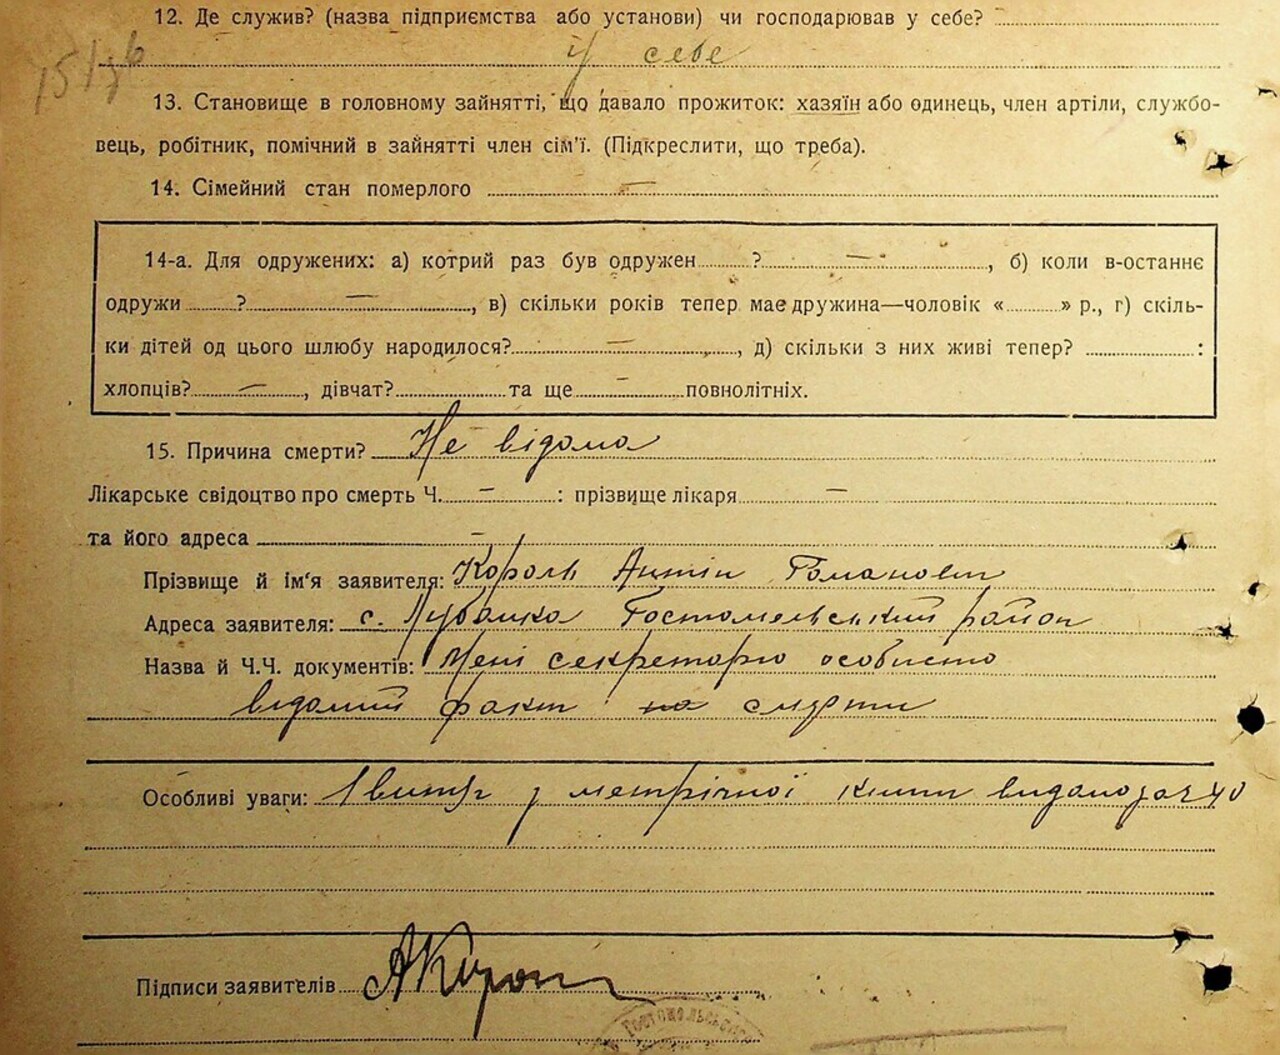 12. Де служив? (назва підприємства або установи) чи господарював у себе?
у себе
13. Становище в головному зайнятті, що давало прожиток: хазяїн або одинець, член артіли, службо-
вець, робітник, помічний в зайнятті член сім'ї. (Підкреслити, що треба).
14. Сімейний стан померлого —
14-а. Для одружених: а) котрий раз був одружен ? —, б) коли в-останнє
одружи ? —, в) скільки років тепер має дружина—чоловік « » р., г) скіль-
ки дітей од цього шлюбу народилося? —, д) скільки з них живі тепер? :
хлопців? —, дівчат? та ще — повнолітніх.
15. Причина смерти? Не відома
Лікарське свідоцтво про смерть Ч. — : прізвище лікаря —
та його адреса —
Прізвище й ім'я заявителя: Король Антін Романович
Адреса заявителя: с. Лубянка Гостомельський район
Назва й Ч.Ч. документів: Мені секретарю особисто
відомий факт на смерти
Особливі уваги: метрічної книги видано 40
Підписи заявителів АКорол